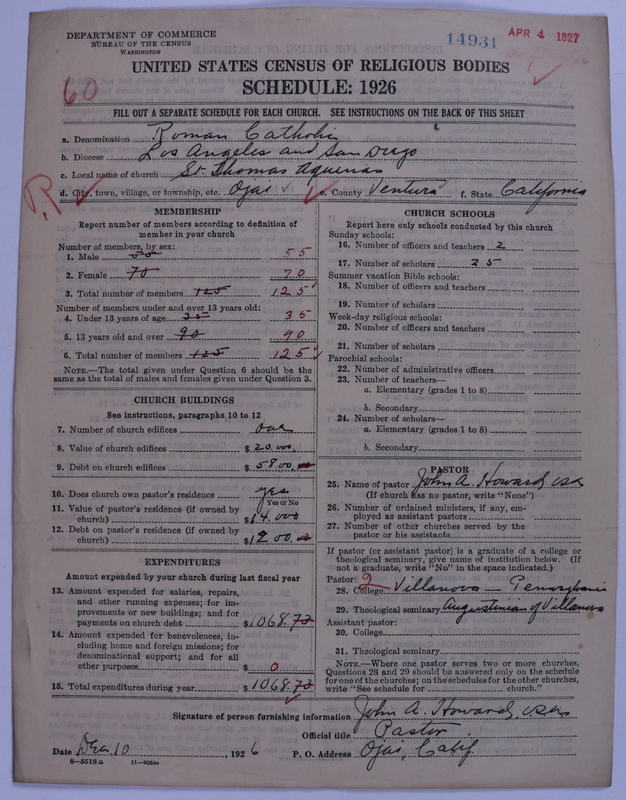 DEPARTMENT OF COMMERCE
BUREAU OF THE CENSUS
WASHINGTON
14931
APR 4 1927
UNITED STATES CENSUS OF RELIGIOUS BODIES
60
SCHEDULE: 1926
FILL OUT A SEPARATE SCHEDULE FOR EACH CHURCH. SEE INSTRUCTIONS ON THE BACK OF THIS SHEET
a. Denomination Roman Catholic
b. Diocese Los Angeles and San Diego
c. Local name of church St. Thomas Aquinas
d. City, town, village, or township, etc. Ojai e. County Ventura f. State California
MEMBERSHIP
Report number of members according to definition of
member in your church
Number of members, by sex:
1. Male 55 55
2. Female 70 70
3. Total number of members 125 125
Number of members under and over 13 years old:
4. Under 13 years of age 35 35
5. 13 years old and over 90 90
6. Total number of members 125 125
NOTE.—The total given under Question 6 should be the
same as the total of males and females given under Question 3.
CHURCH BUILDINGS
See instructions, paragraphs 10 to 12
7. Number of church edifices one
8. Value of church edifices $ 20,000
9. Debt on church edifices $ 5800
10. Does church own pastor's residence yes
Yes or No
11. Value of pastor's residence (if owned by
church) $ 14,000
12. Debt on pastor's residence (if owned by
church) $ 1200
EXPENDITURES
Amount expended by your church during last fiscal year
13. Amount expended for salaries, repairs,
and other running expenses; for im-
provements or new buildings; and for
payments on church debt $ 1068.72
14. Amount expended for benevolences, in-
cluding home and foreign missions; for
denominational support; and for all
other purposes $ 0
15. Total expenditures during year $ 1068.72
CHURCH SCHOOLS
Report here only schools conducted by this church
Sunday schools:
16. Number of officers and teachers 2
17. Number of scholars 25
Summer vacation Bible schools:
18. Number of officers and teachers
19. Number of scholars
Week-day religious schools:
20. Number of officers and teachers
21. Number of scholars
Parochial schools:
22. Number of administrative officers
23. Number of teachers—
a. Elementary (grades 1 to 8)
b. Secondary
24. Number of scholars—
a. Elementary (grades 1 to 8)
b. Secondary
PASTOR
25. Name of pastor John A. Howard, OSA
(If church has no pastor, write "None")
26. Number of ordained ministers, if any, em-
ployed as assistant pastors
27. Number of other churches served by the
pastor or his assistants
If pastor (or assistant pastor) is a graduate of a college or
theological seminary, give name of institution below. (If
not a graduate, write "No" in the space indicated.)
Pastor: 2
28. College Villanova – Pennsylvania
29. Theological seminary Augustinian of Villanova
Assistant pastor:
30. College
31. Theological seminary
NOTE.—Where one pastor serves two or more churches,
Questions 28 and 29 should be answered only on the schedule
for one of the churches; on the schedules for the other churches,
write "See schedule for church."
Signature of person furnishing information John A. Howard, OSA
Official title Pastor
Date Dec 10, 1926 P. O. Address Ojai, Calif.
8—5518 a 11—9034